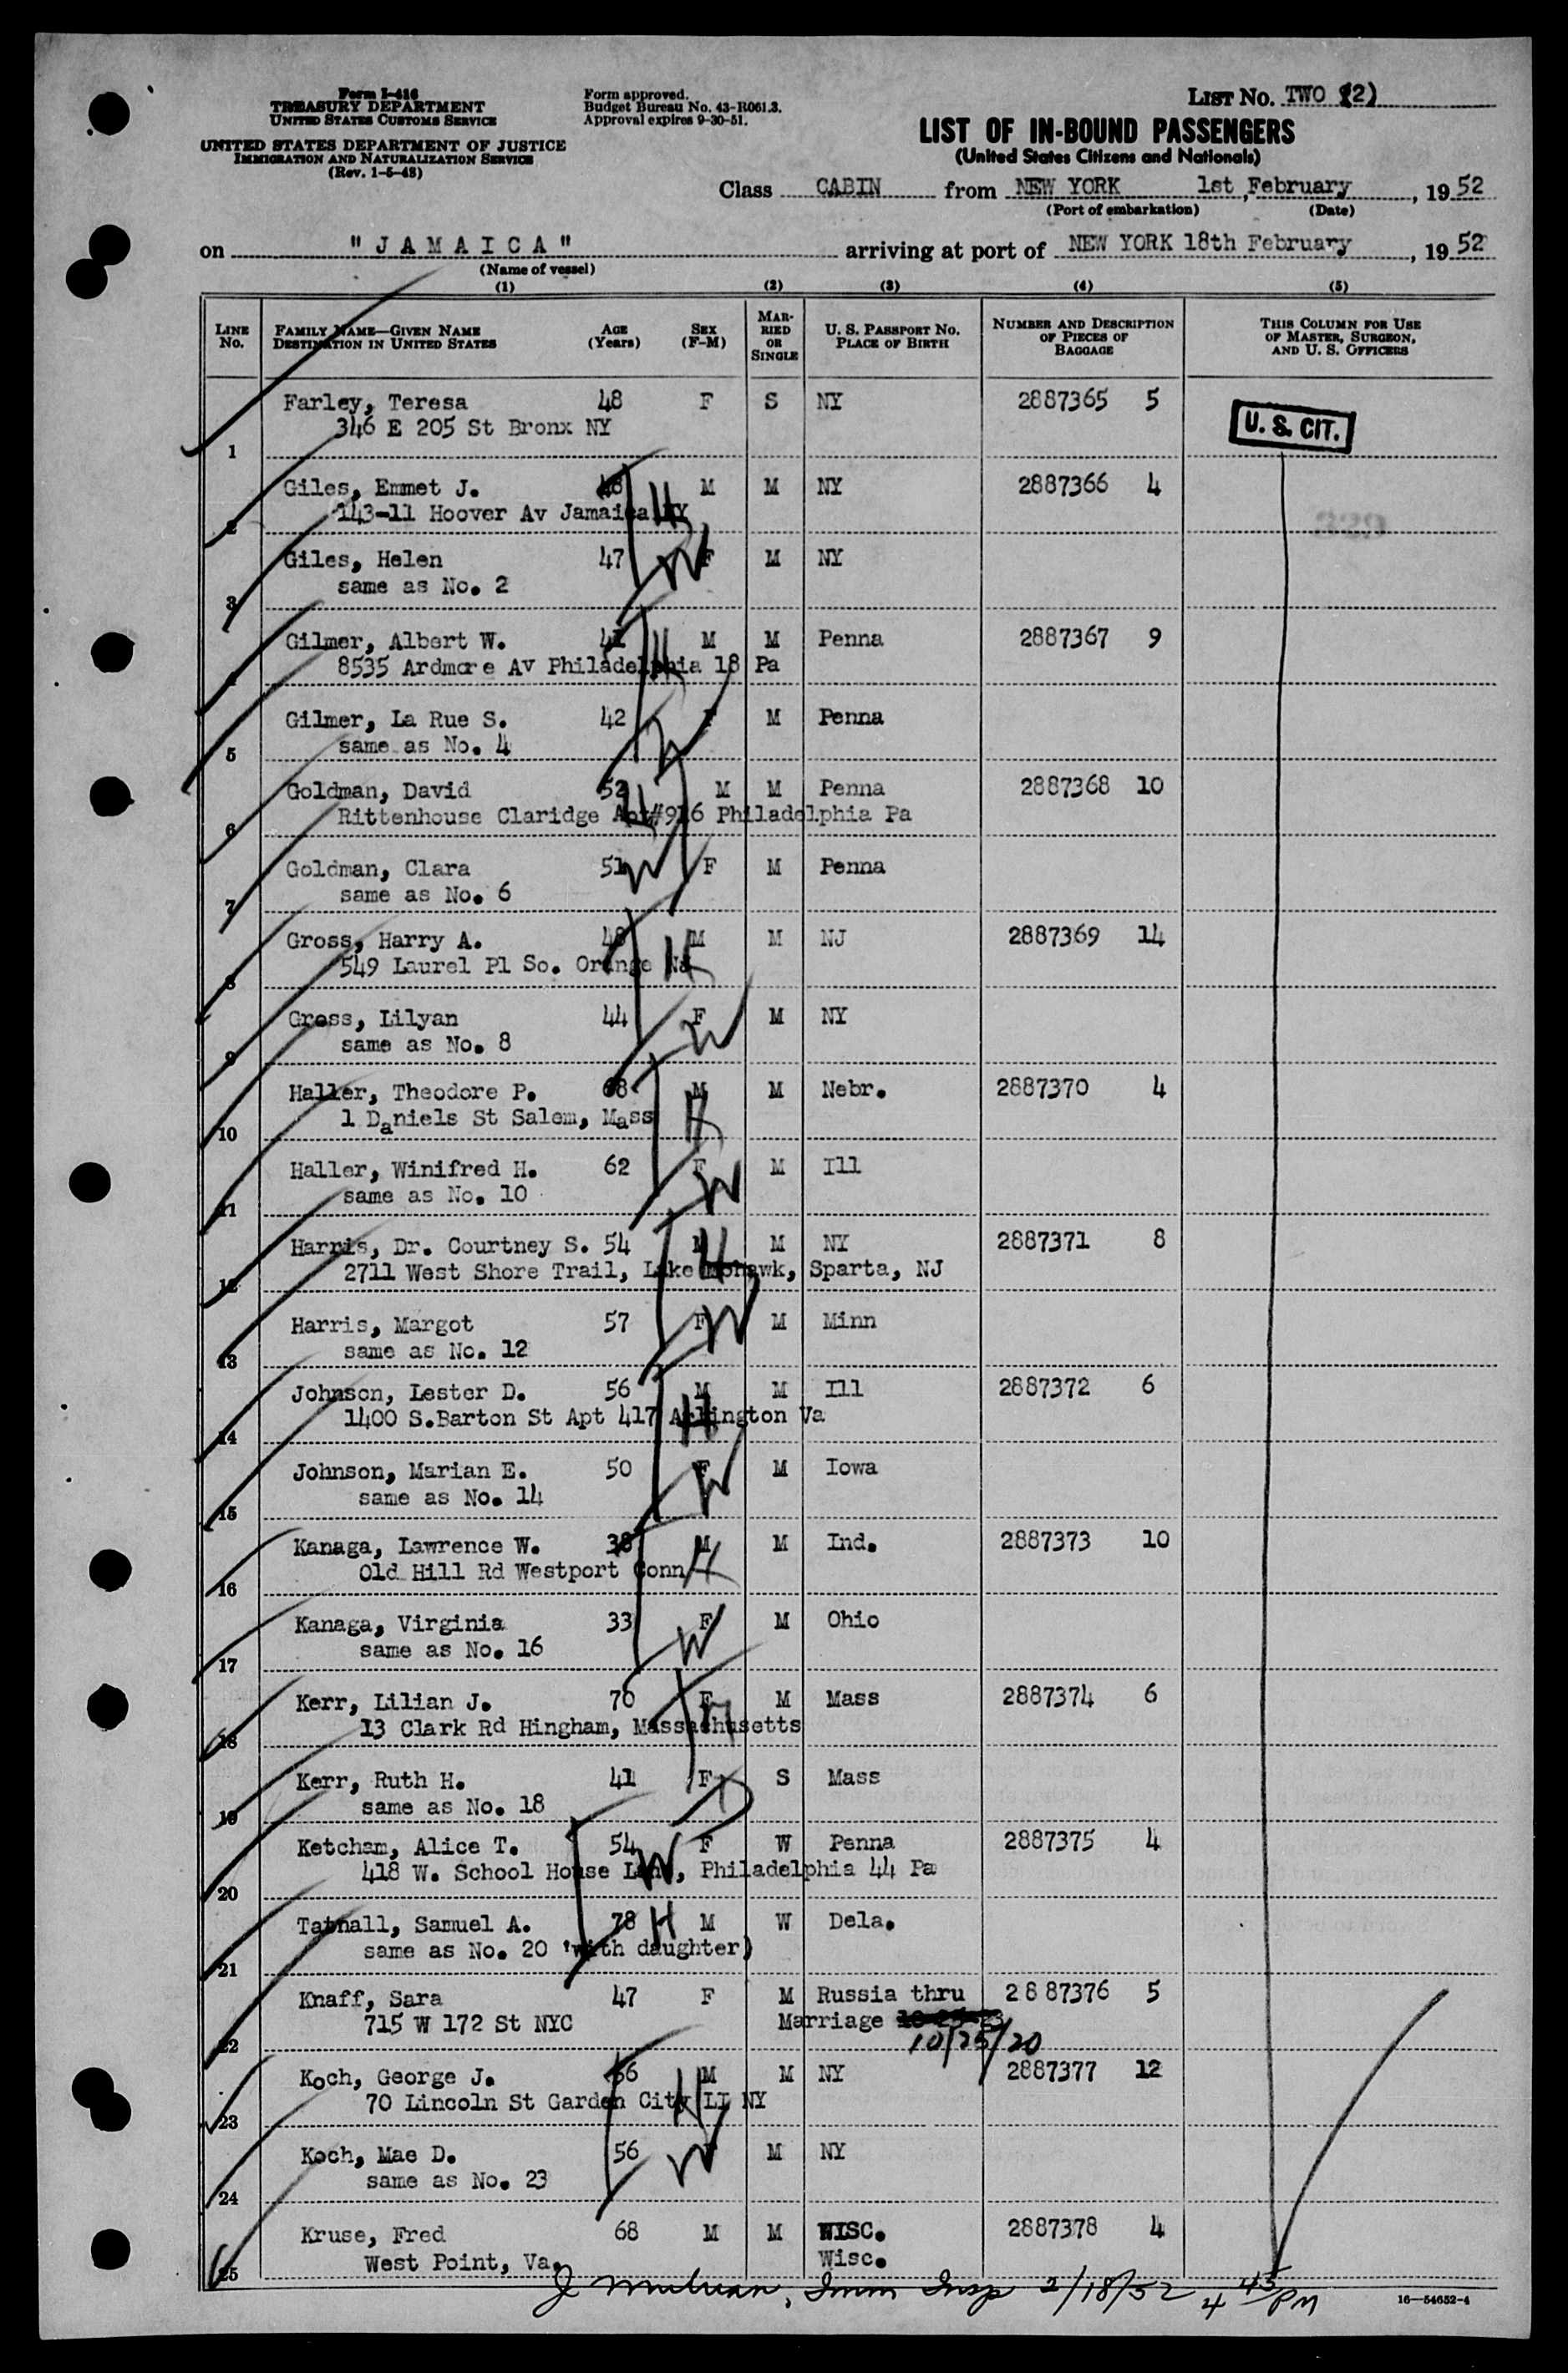 Form I-416
TREASURY DEPARTMENT
UNITED STATES CUSTOMS SERVICE
UNITED STATES DEPARTMENT OF JUSTICE
IMMIGRATION AND NATURALIZATION SERVICE
(Rev. 1-5-48)
Form approved.
Budget Bureau No. 43-R061.3.
Approval expires 9-30-51.
LIST No. TWO (2)
LIST OF IN-BOUND PASSENGERS
(United States Citizens and Nationals)
Class CABIN from NEW YORK 1st February, 1952
(Port of embarkation) (Date)
on "JAMAICA" arriving at port of NEW YORK 18th February, 1952
(Name of vessel)
(1) (2) (3) (4) (5)
LINE No. FAMILY NAME—GIVEN NAME DESTINATION IN UNITED STATES AGE (Years) SEX (F-M) MARRIED OR SINGLE U. S. PASSPORT No. PLACE OF BIRTH NUMBER AND DESCRIPTION OF PIECES OF BAGGAGE THIS COLUMN FOR USE OF MASTER, SURGEON, AND U. S. OFFICERS
Farley, Teresa 48 F S NY 2887365 5 U. S. CIT.
1 346 E 205 St Bronx NY
Giles, Emmet J. 48 M M NY 2887366 4 H
2 143-11 Hoover Av Jamaica NY
Giles, Helen 47 F M NY W
3 same as No. 2
Gilmer, Albert W. 41 M M Penna 2887367 9 H
4 8535 Ardmore Av Philadelphia 18 Pa
Gilmer, La Rue S. 42 F M Penna W
5 same as No. 4
Goldman, David 52 M M Penna 2887368 10 H
6 Rittenhouse Claridge Apt#916 Philadelphia Pa
Goldman, Clara 51 F M Penna W
7 same as No. 6
Gross, Harry A. 48 M M NJ 2887369 14 H
8 549 Laurel Pl So. Orange NJ
Gross, Lilyan 44 F M NY W
9 same as No. 8
Haller, Theodore P. 68 M M Nebr. 2887370 4 H
10 1 Daniels St Salem, Mass
Haller, Winifred H. 62 F M Ill W
11 same as No. 10
Harris, Dr. Courtney S. 54 M M NY 2887371 8 H
12 2711 West Shore Trail, Lake Mohawk, Sparta, NJ
Harris, Margot 57 F M Minn W
13 same as No. 12
Johnson, Lester D. 56 M M Ill 2887372 6 H
14 1400 S.Barton St Apt 417 Arlington Va
Johnson, Marian E. 50 F M Iowa W
15 same as No. 14
Kanaga, Lawrence W. 38 M M Ind. 2887373 10 H
16 Old Hill Rd Westport Conn
Kanaga, Virginia 33 F M Ohio W
17 same as No. 16
Kerr, Lilian J. 70 F M Mass 2887374 6
18 13 Clark Rd Hingham, Massachusetts
Kerr, Ruth H. 41 F S Mass D
19 same as No. 18
Ketcham, Alice T. 54 F W Penna 2887375 4 W
20 418 W. School House Lane, Philadelphia 44 Pa
Tatnall, Samuel A. 78 M W Dela. H
21 same as No. 20 'with daughter)
Knaff, Sara 47 F M Russia thru 2887376 5
22 715 W 172 St NYC Marriage
10/25/20
Koch, George J. 56 M M NY 2887377 12 H
23 70 Lincoln St Garden City LI NY
Koch, Mae D. 56 F M NY W
24 same as No. 23
Kruse, Fred 68 M M WISC. 2887378 4
25 West Point, Va. Wisc.
Imm Insp 2/18/52 4 45 PM
16—54652-4